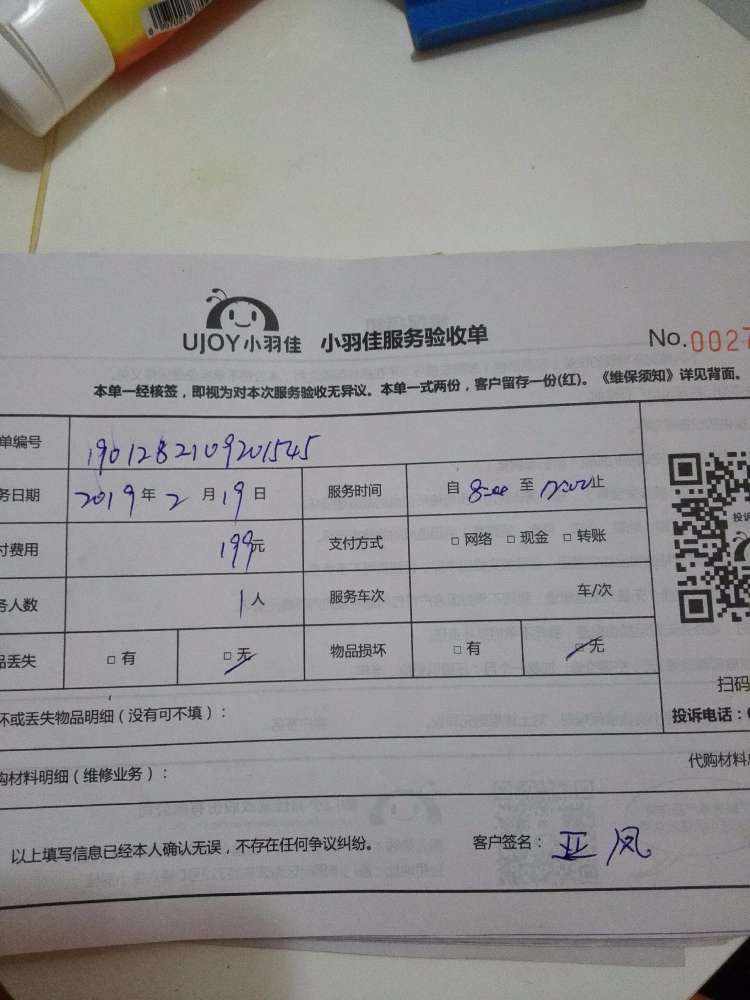 UJOY小羽佳 小羽佳服务验收单 No.0027
本单一经核签，即视为对本次服务验收无异议。本单一式两份，客户留存一份(红)。《维保须知》详见背面。
单编号 1901282109201545
务日期 2019年2月19日 服务时间 自8:00至12:00止
付费用 199元 支付方式 □网络 □现金 □转账
务人数 1人 服务车次 车/次
品丢失 □有 □无 物品损坏 □有 □无
投诉
扫码
坏或丢失物品明细（没有可不填）： 投诉电话：0
购材料明细（维修业务）： 代购材料
以上填写信息已经本人确认无误，不存在任何争议纠纷。 客户签名：亚凤